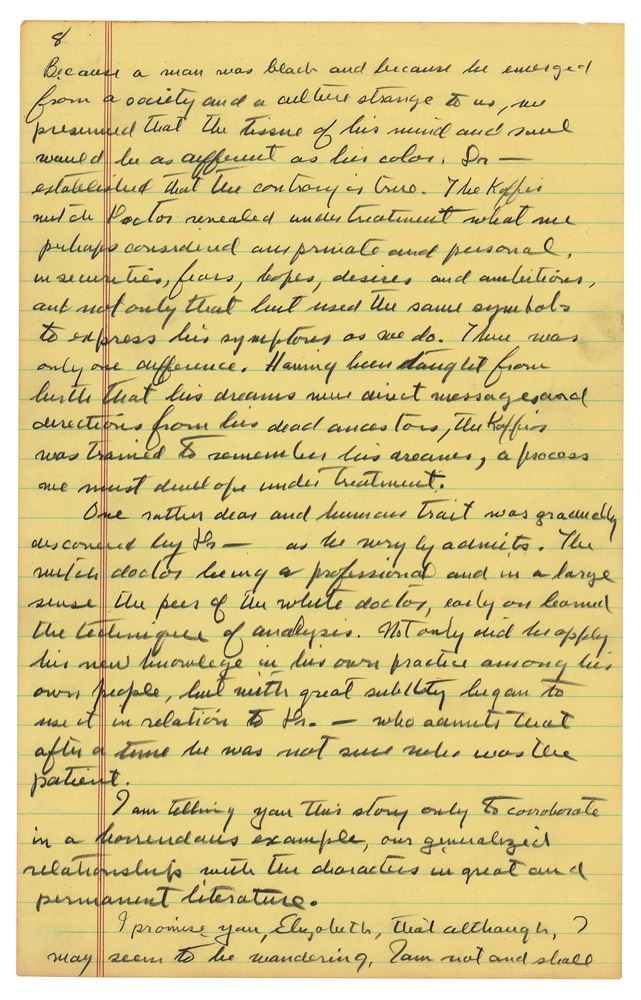 8
Because a man was black and because he emerged
from a society and a culture strange to us, we
presumed that the tissue of his mind and soul
would be as different as his color. Dr —
established that the contrary is true. The Kaffir
witch doctor revealed under treatment what we
perhaps considered our private and personal,
insecurities, fears, hopes, desires and ambitions,
and not only that but used the same symbols
to express his symptoms as we do. There was
only one difference. Having been taught from
birth that his dreams were direct messages and
directions from his dead ancestors, the Kaffir
was trained to remember his dreams, a process
we must develope under treatment.
One rather dear and human trait was gradually
discovered by Dr — as he wryly admits. The
witch doctor being a professional and in a large
sense the peer of the white doctor, early on learned
the technique of analysis. Not only did he apply
his new knowlege in his own practice among his
own people, but with great subtlty began to
use it in relation to Dr. — who admits that
after a time he was not sure who was the
patient.
I am telling you this story only to corroborate
in a horrendous example, our generalized
relationships with the characters in great and
permanent literature.
I promise you, Elizabeth, that although, I
may seem to be wandering, I am not and shall